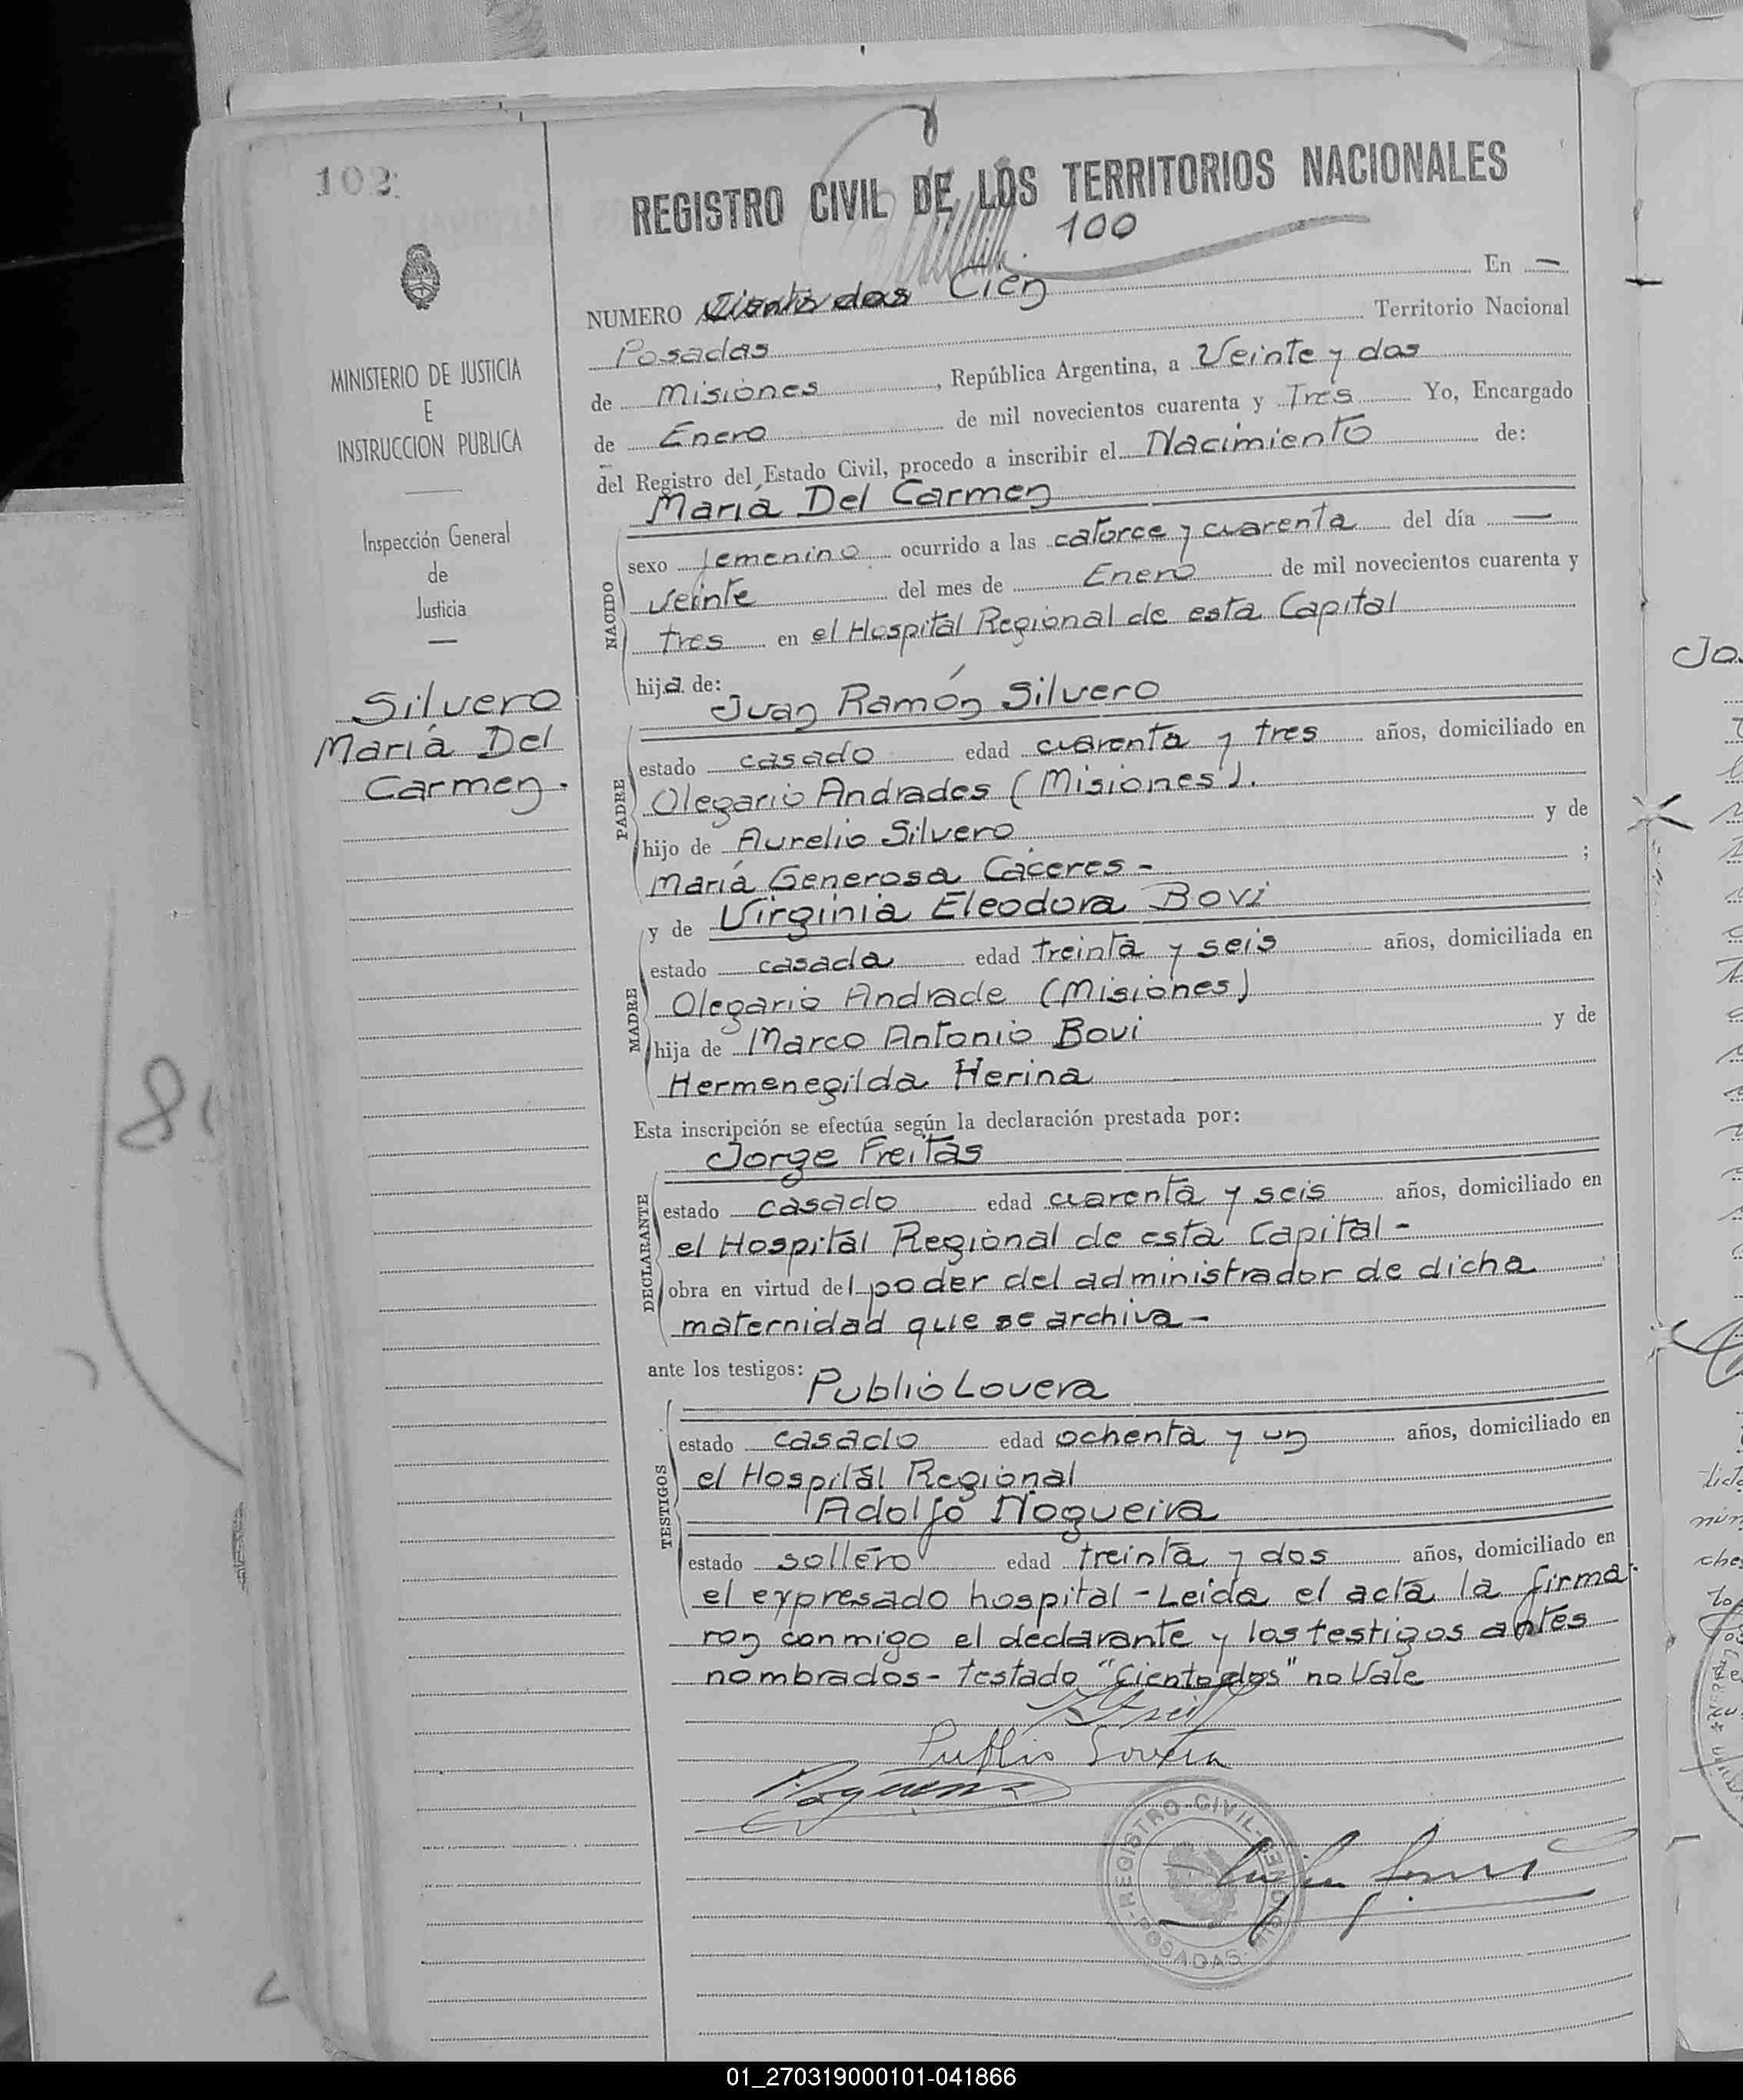 102
REGISTRO CIVIL DE LOS TERRITORIOS NACIONALES
100
MINISTERIO DE JUSTICIA
E
INSTRUCCION PUBLICA
Inspección General
de
Justicia
Silvero
María Del
Carmen.
NUMERO Ciento dos Cien En —
Posadas Territorio Nacional
de Misiones, República Argentina, a Veinte y dos
de Enero de mil novecientos cuarenta y Tres Yo, Encargado
del Registro del Estado Civil, procedo a inscribir el Nacimiento de:
María Del Carmen
NACIDO
sexo femenino ocurrido a las catorce y cuarenta del día —
veinte del mes de Enero de mil novecientos cuarenta y
tres en el Hospital Regional de esta Capital
hija de:
Juan Ramón Silvero
PADRE
estado casado edad cuarenta y tres años, domiciliado en
Olegario Andrades (Misiones).
hijo de Aurelio Silvero y de
María Generosa Cáceres - ;
y de Virginia Eleodora Bovi
MADRE
estado casada edad treinta y seis años, domiciliada en
Olegario Andrade (Misiones)
hija de Marco Antonio Bovi y de
Hermenegilda Herina
Esta inscripción se efectúa según la declaración prestada por:
Jorge Freitas
DECLARANTE
estado casado edad cuarenta y seis años, domiciliado en
el Hospital Regional de esta Capital -
obra en virtud del poder del administrador de dicha
maternidad que se archiva -
ante los testigos:
Publio Lovera
TESTIGOS
estado casado edad ochenta y un años, domiciliado en
el Hospital Regional
Adolfo Nogueira
estado soltero edad treinta y dos años, domiciliado en
el expresado hospital - Leida el acta la firma-
ron conmigo el declarante y los testigos antes
nombrados - testado "Ciento dos" no Vale
Publio Lovera
Nogueira
REGISTRO CIVIL
POSADAS
01_270319000101-041866